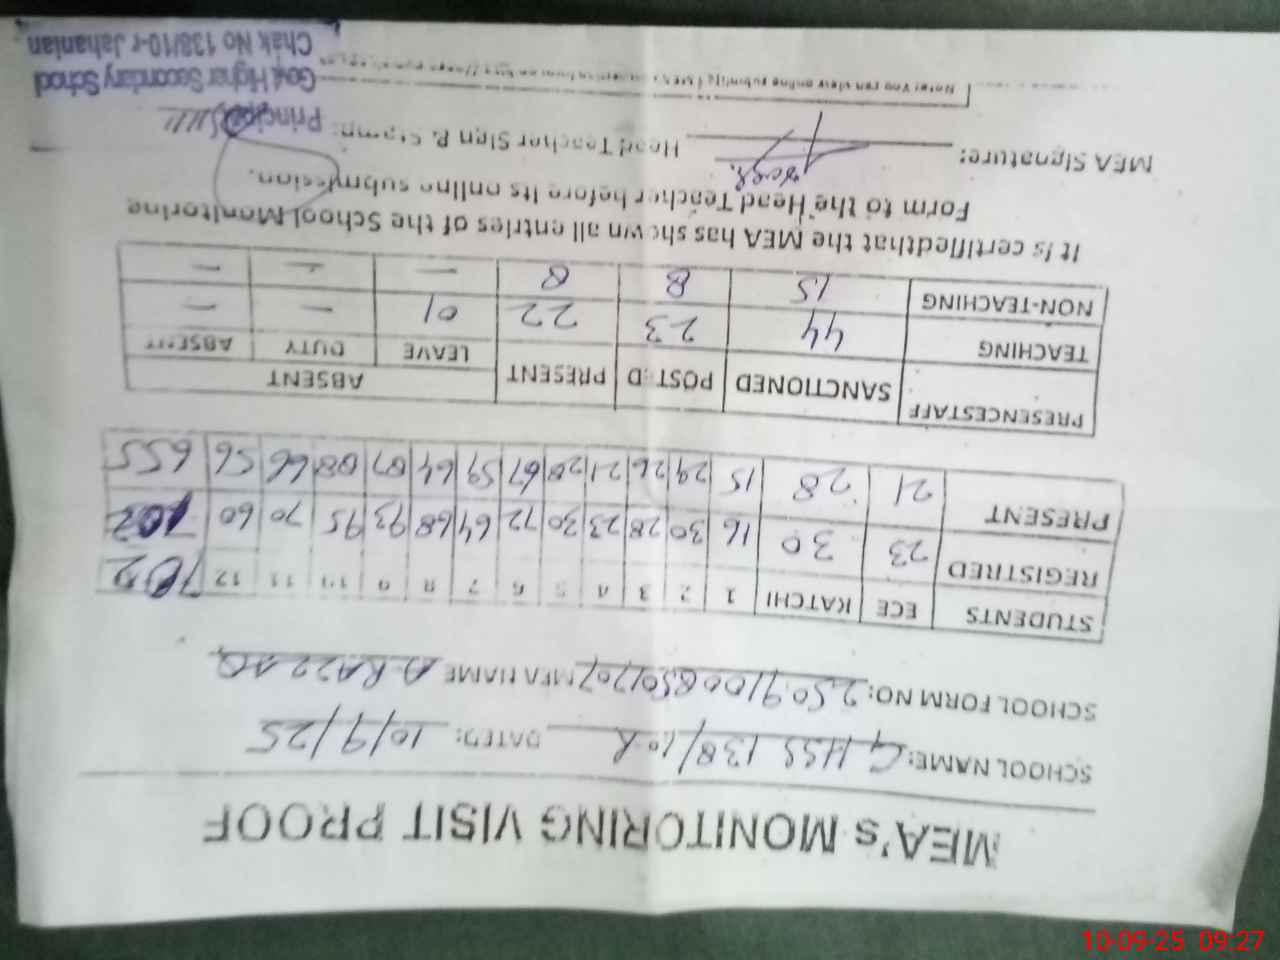 MEA's MONITORING VISIT PROOF
SCHOOL NAME: GHSS 138/10-R DATED: 10/9/25
SCHOOL FORM NO: MEA NAME A. RAZZAQ
STUDENTS ECE KATCHI 1 2 3 4 5 6 7 8 9 10 11 12 702
REGISTRED 23 30 16 30 28 23 30 72 64 68 93 95 70 60 702
PRESENT 21 28 15 29 26 21 28 67 59 64 87 88 66 56 655
PRESENCESTAFF SANCTIONED POSTED PRESENT ABSENT
LEAVE DUTY ABSENT
TEACHING 44 23 22 01 - -
NON-TEACHING 15 8 8 - - -
It is certifiedthat the MEA has shown all entries of the School Monitoring
Form to the Head Teacher before its online submission.
MEA Signature: Head Teacher Sign & Stamp:
Principal
Govt Higher Secondary School
Chak No 138/10-r Jahanian
Note: You can view online submitted
10-09-25 09:27